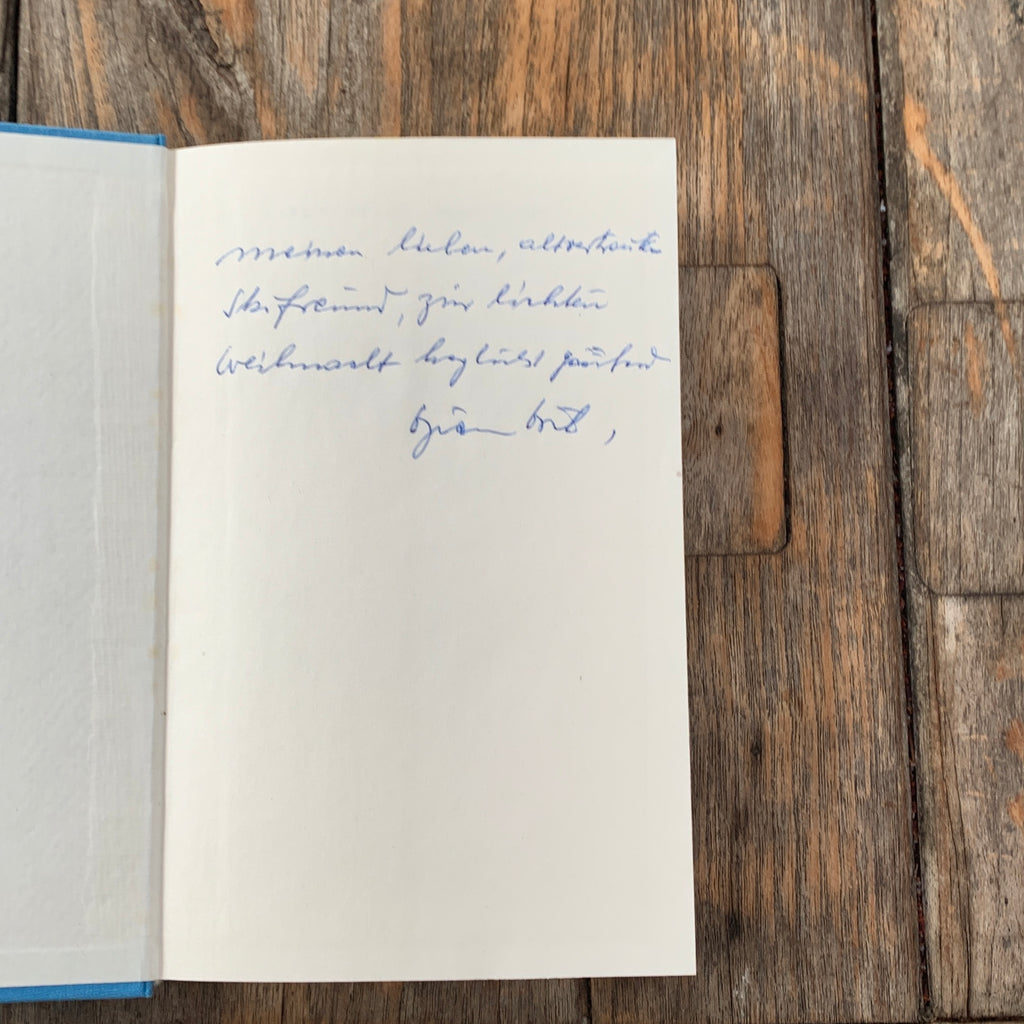 meinen lieben, altvertrauten
Skifreund, zur lichten
Weihnacht herzlichst grüßend